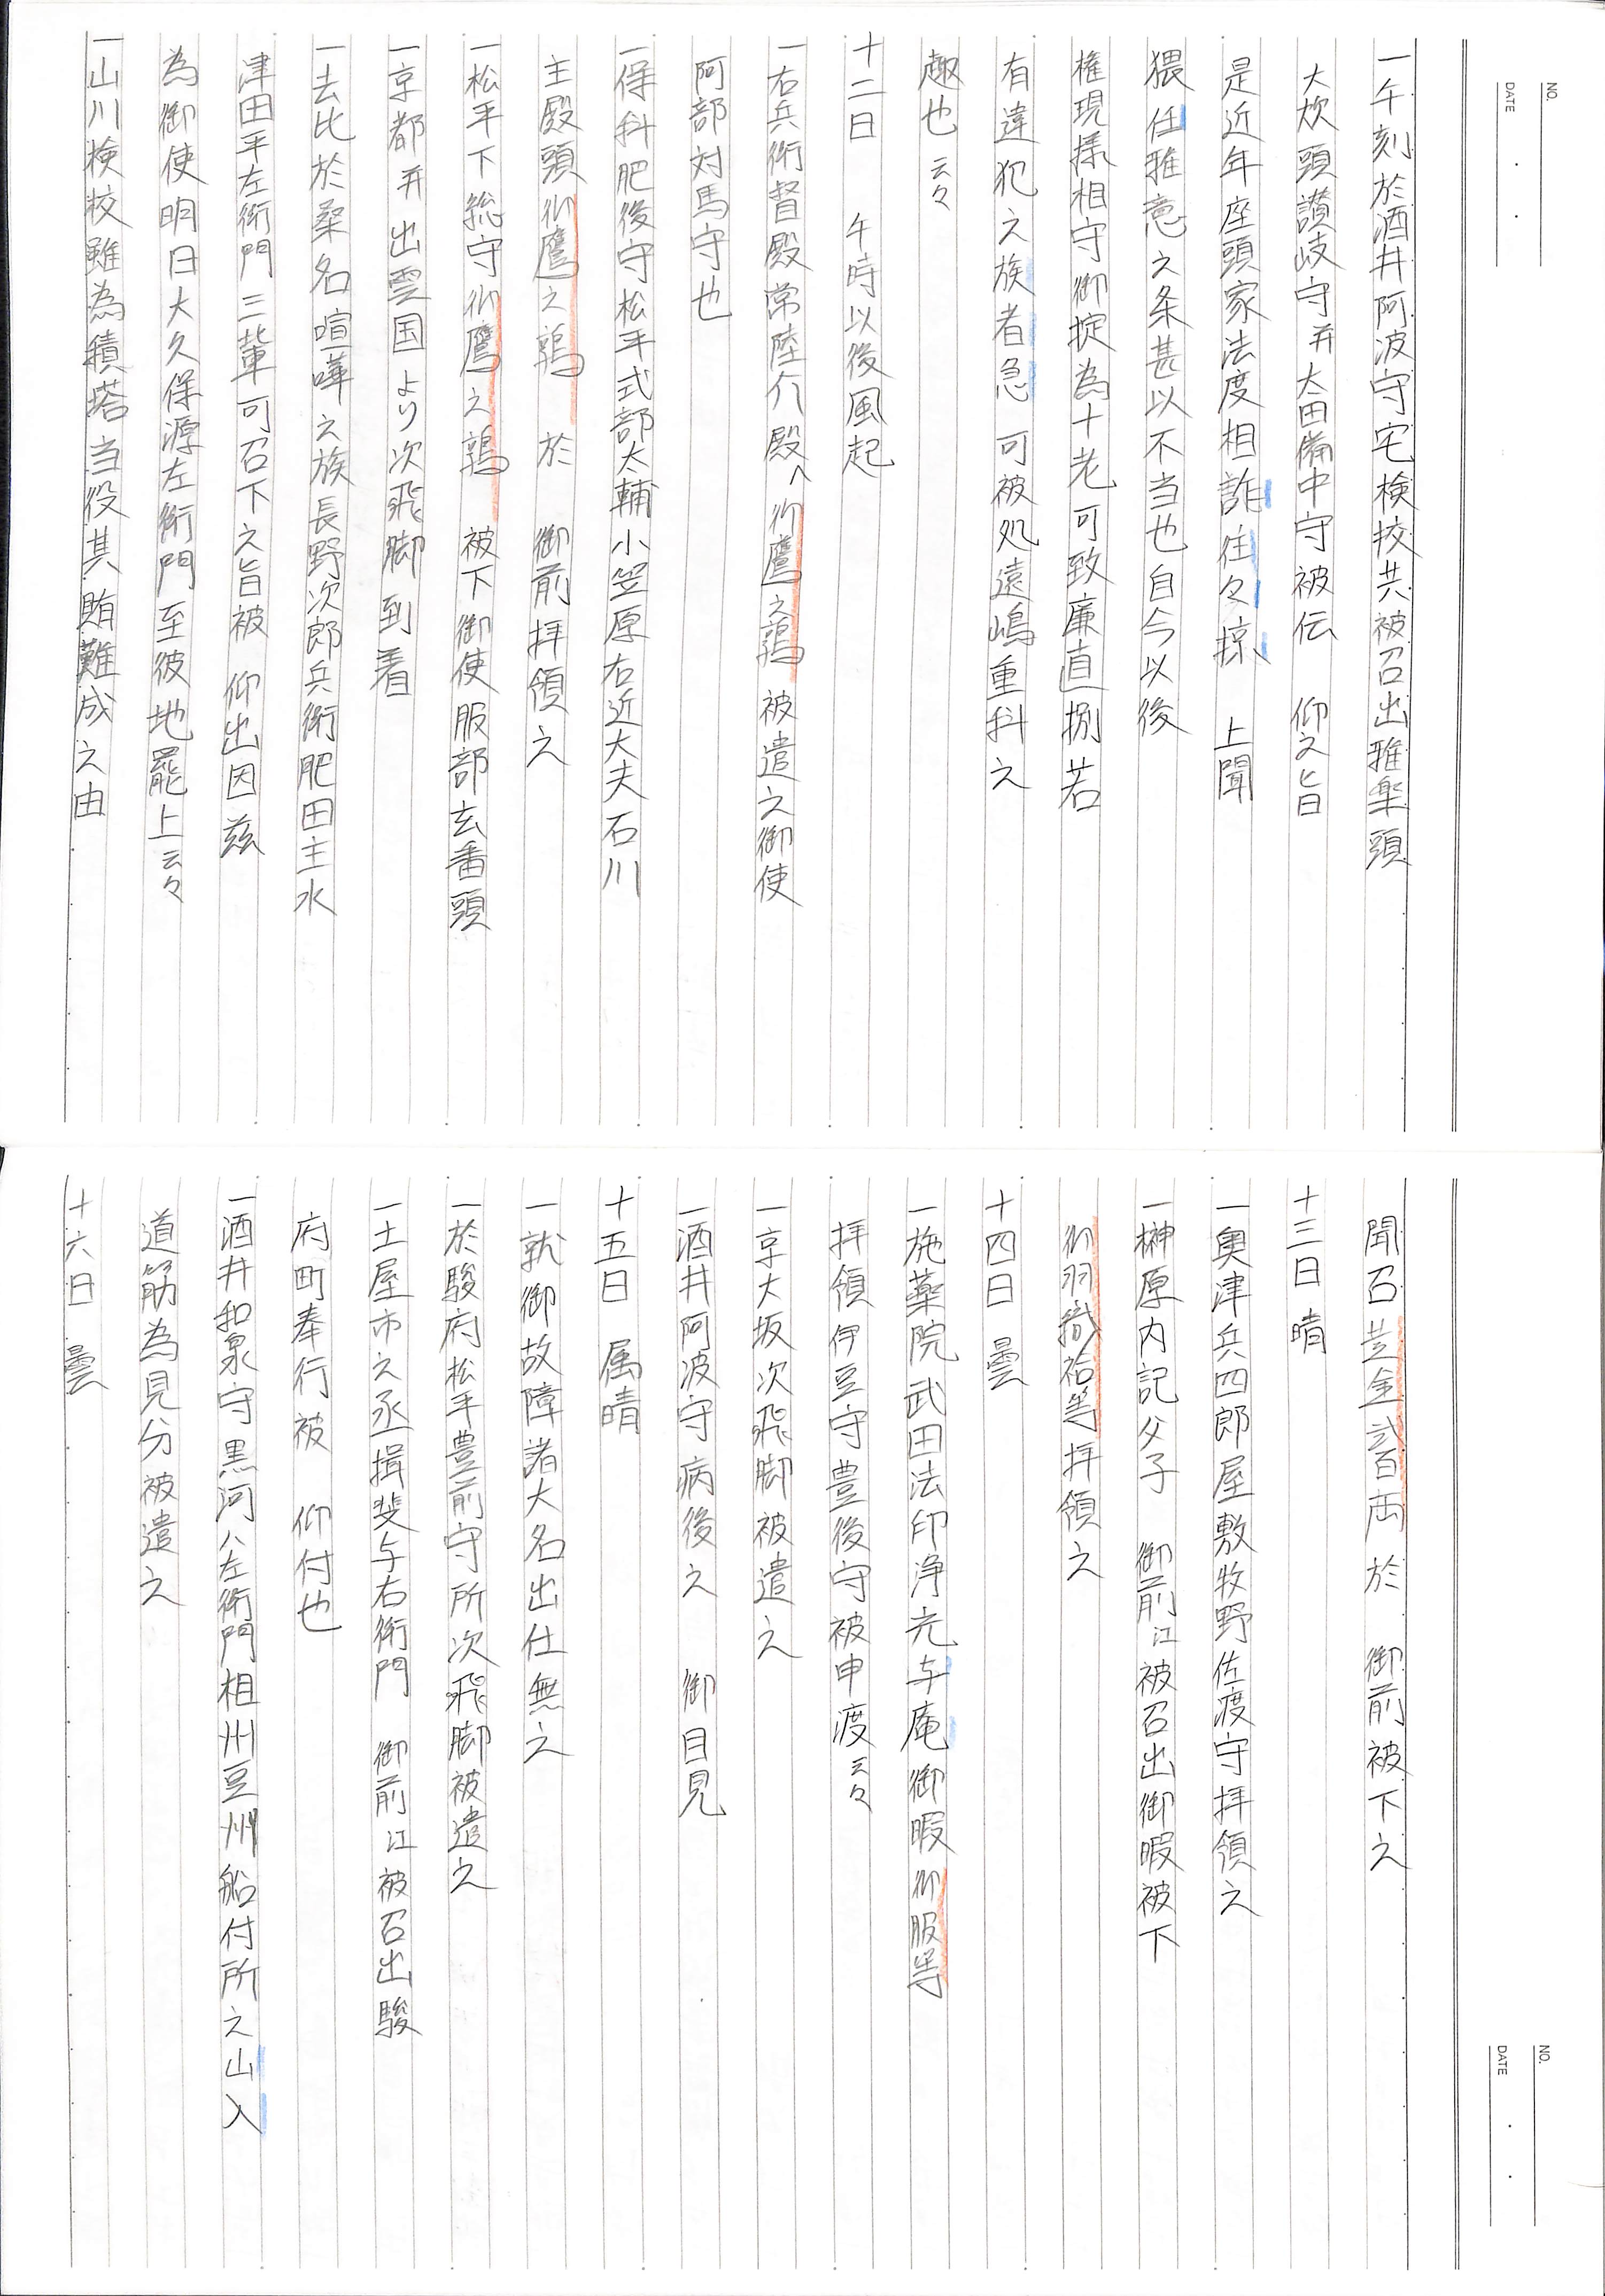 NO.
DATE
一午刻於酒井阿波守宅検校共被召出雅楽頭
大炊頭讃岐守并太田備中守被伝　仰之旨
是近年座頭家法度相詐往々掠　上聞
猥任雅意之条甚以不当也自今以後
権現様相守御掟為十老可致廉直捌若
有違犯之族者急可被処遠嶋重科之
趣也云々
十二日　午時以後風起
一右兵衛督殿常陸介殿へ御鷹之鶉被遣之御使
阿部対馬守也
一保科肥後守松平式部太輔小笠原右近大夫石川
主殿頭御鷹之鶉　於　御前拝領之
一松平下総守御鷹之鶉　被下御使服部玄番頭
一京都并出雲国より次飛脚到着
一去比於桑名喧嘩之族長野次郎兵衛肥田主水
津田平左衛門三輩可召下之旨被　仰出因茲
為御使明日大久保源左衛門至彼地罷上云々
一山川検校雖為積塔当役其賄難成之由
NO.
DATE
聞召芝金弐百両於　御前被下之
十三日　晴
一奥津兵四郎屋敷牧野佐渡守拝領之
一榊原内記父子　御前江被召出御暇被下
御羽織袷等拝領之
十四日　曇
一施薬院武田法印浄元与庵御暇御服等
拝領伊豆守豊後守被申渡云々
一京大坂次飛脚被遣之
一酒井阿波守病後之　御目見
十五日　属晴
一就御故障諸大名出仕無之
一於駿府松平豊前守所次飛脚被遣之
一土屋市之丞揖斐与右衛門　御前江被召出駿
府町奉行被　仰付也
一酒井和泉守黒河八左衛門相州豆州船付所之山入
道筋為見分被遣之
十六日　曇